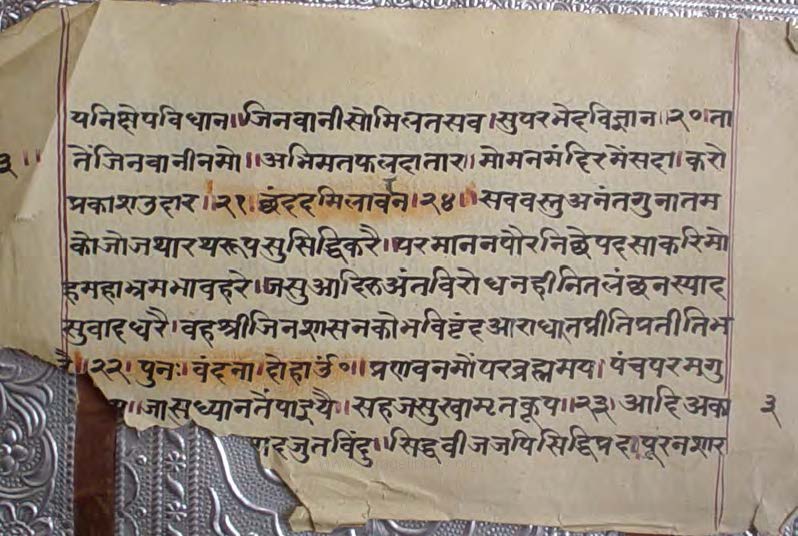 यनिक्षेपविधान॥जिनवानीसोमिलतसव।सुपरभेदविज्ञान।२०।ता
३॥ तेंजिनवानीनमो॥अभिमतफलदातार।मोमनमंदिरमेंसदा।करो
प्रकाशउदार।२१।छंददमिलावर्वन।२४॥सववस्तुअनंतगुनातम
कोजोजथारथरूपसुसिद्धिकरै।परमाननपौरनिछेपदसाकरिमो
हमहाभ्रमभावहरे।जसुआदिरुअंतविरोधनहीनितलंछनस्याद
सुवादधरै।वहश्रीजिनशासनकोभविवृंदआराधातप्रीतिप्रतीतिभ
रै॥२२।पुनः।वंदना।दोहा॥प्रणवनमोंपरव्रह्ममय।पंचपरमगु
जासध्यानतेंपाइयै।सहजसुखामृतकूप॥२३।आदिअका ३
जुतविंदु॥सिद्धवीजजपिसिद्धिप्रद।पूरनशार